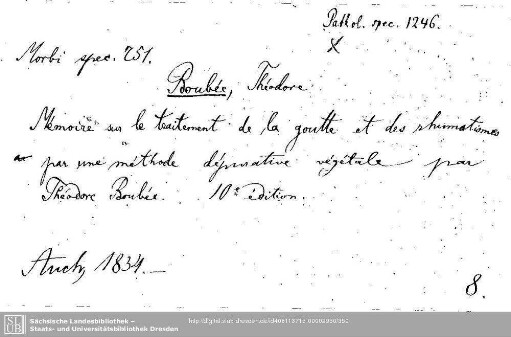 Pathol. spec. 1246.
X
Morbi spec. 751.
Boubée, Théodore
Mémoire sur le traitement de la goutte et des rhumatismes
par une méthode dépurative végétale par
Théodore Boubée. 10e édition.
Auch, 1834.
8.
Sächsische Landesbibliothek –
Staats- und Universitätsbibliothek Dresden